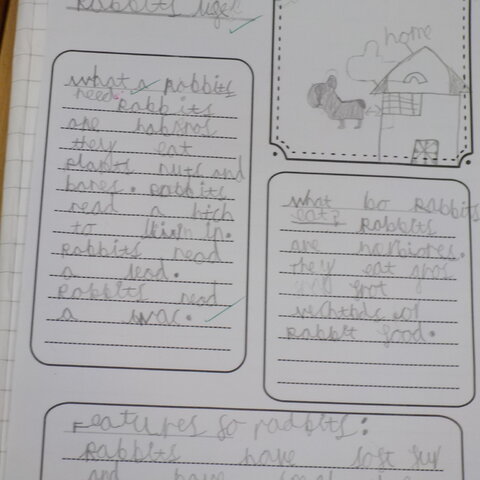 Rabbits
home
what a Rabbits
need Rabbits
are
they eat
plants nuts and
bares. Rabbits
nead a hich
to in.
Rabbits nead
a lead.
Rabbits nead
a
what bo Rabbits
eat? Rabbits
are harbiores.
they eat gras
and frot
Rabbit food.
Features fo radbits:
Rabbits have sost fur
and have